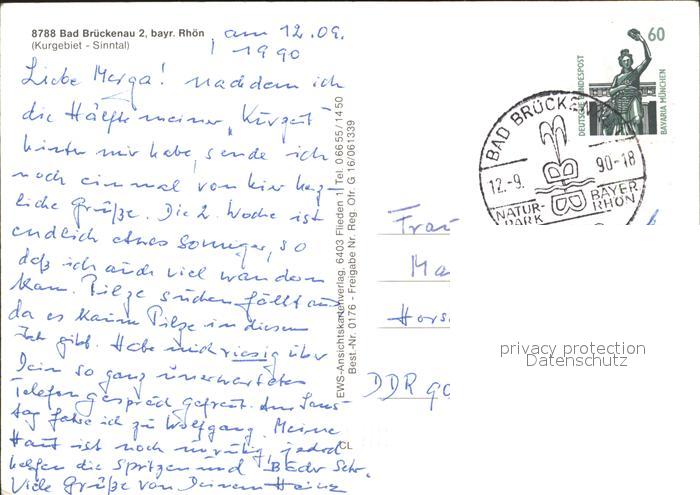 8788 Bad Brückenau 2, bayr. Rhön
(Kurgebiet - Sinntal)
am 12.09.
1990
Liebe Merga! nachdem ich
die Hälfte meiner "Kurzeit"
hinter mir habe, sende ich
noch einmal von hier herz-
liche Grüße. Die 2. Woche ist
endlich etwas sonniger, so
daß ich auch viel wandern
kann. Pilze suchen fällt aus
da es kaum Pilze in diesem
Jahr gibt. Habe mich riesig über
Dein so ganz unerwartetes
Telefongespräch gefreut. Am Sams-
tag fahre ich zu Wolfgang. Meine
Haut ist noch unruhig, jedoch
helfen die Spritzen und
Viele Grüße von Deinem Heinz
EWS-Ansichtskartenverlag, 6403 Flieden 1, Tel. 06655/1450
Best.-Nr. 0176 - Freigabe Nr. Reg. Ofr. G 16/061339
CL
60
DEUTSCHE BUNDESPOST
BAVARIA MÜNCHEN
BAD BRÜCKE
12.-9. 90-18
NATUR-
PARK
BAYER
RHÖN
Frau
Ma
Hors
DDR 90
privacy protection
Datenschutz